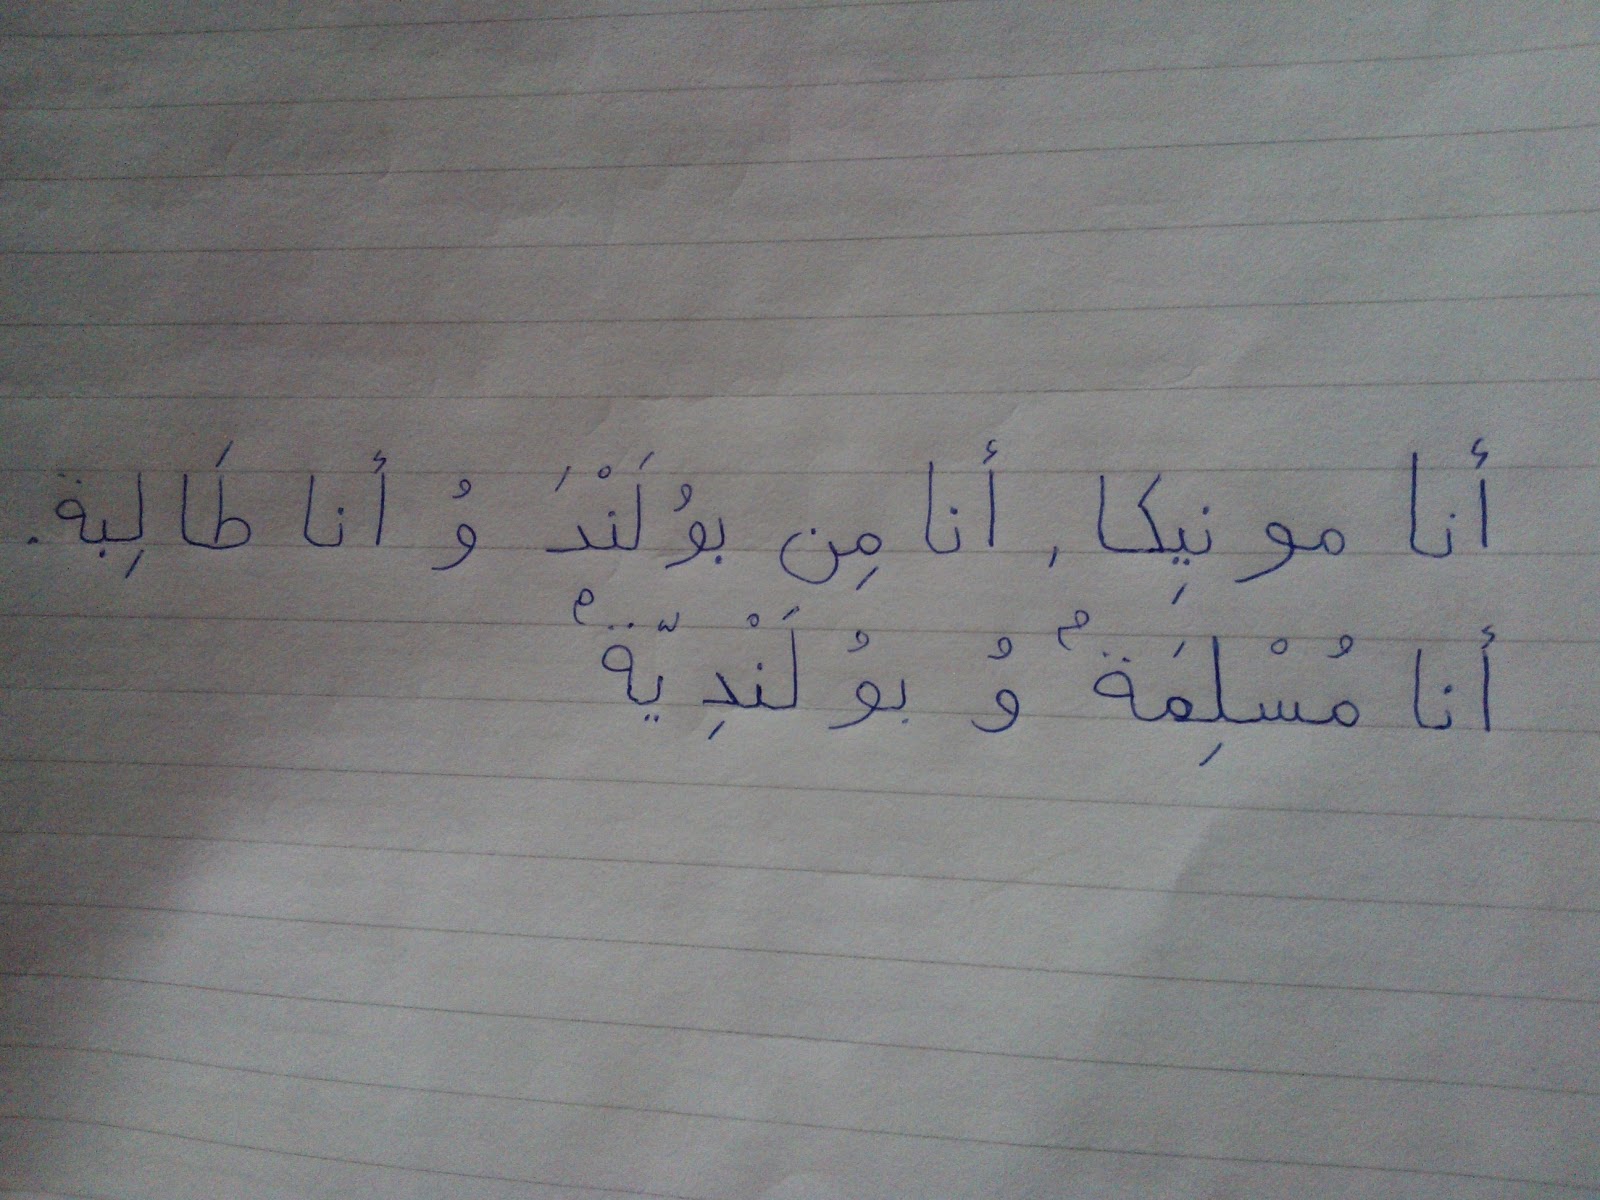 أنا مونِيكا, أنا مِن بوُلَنْدَ وُ أنا طَالِبة.
أنا مُسْلِمَةٌ وُ بوُلَنْدِيّةٌ